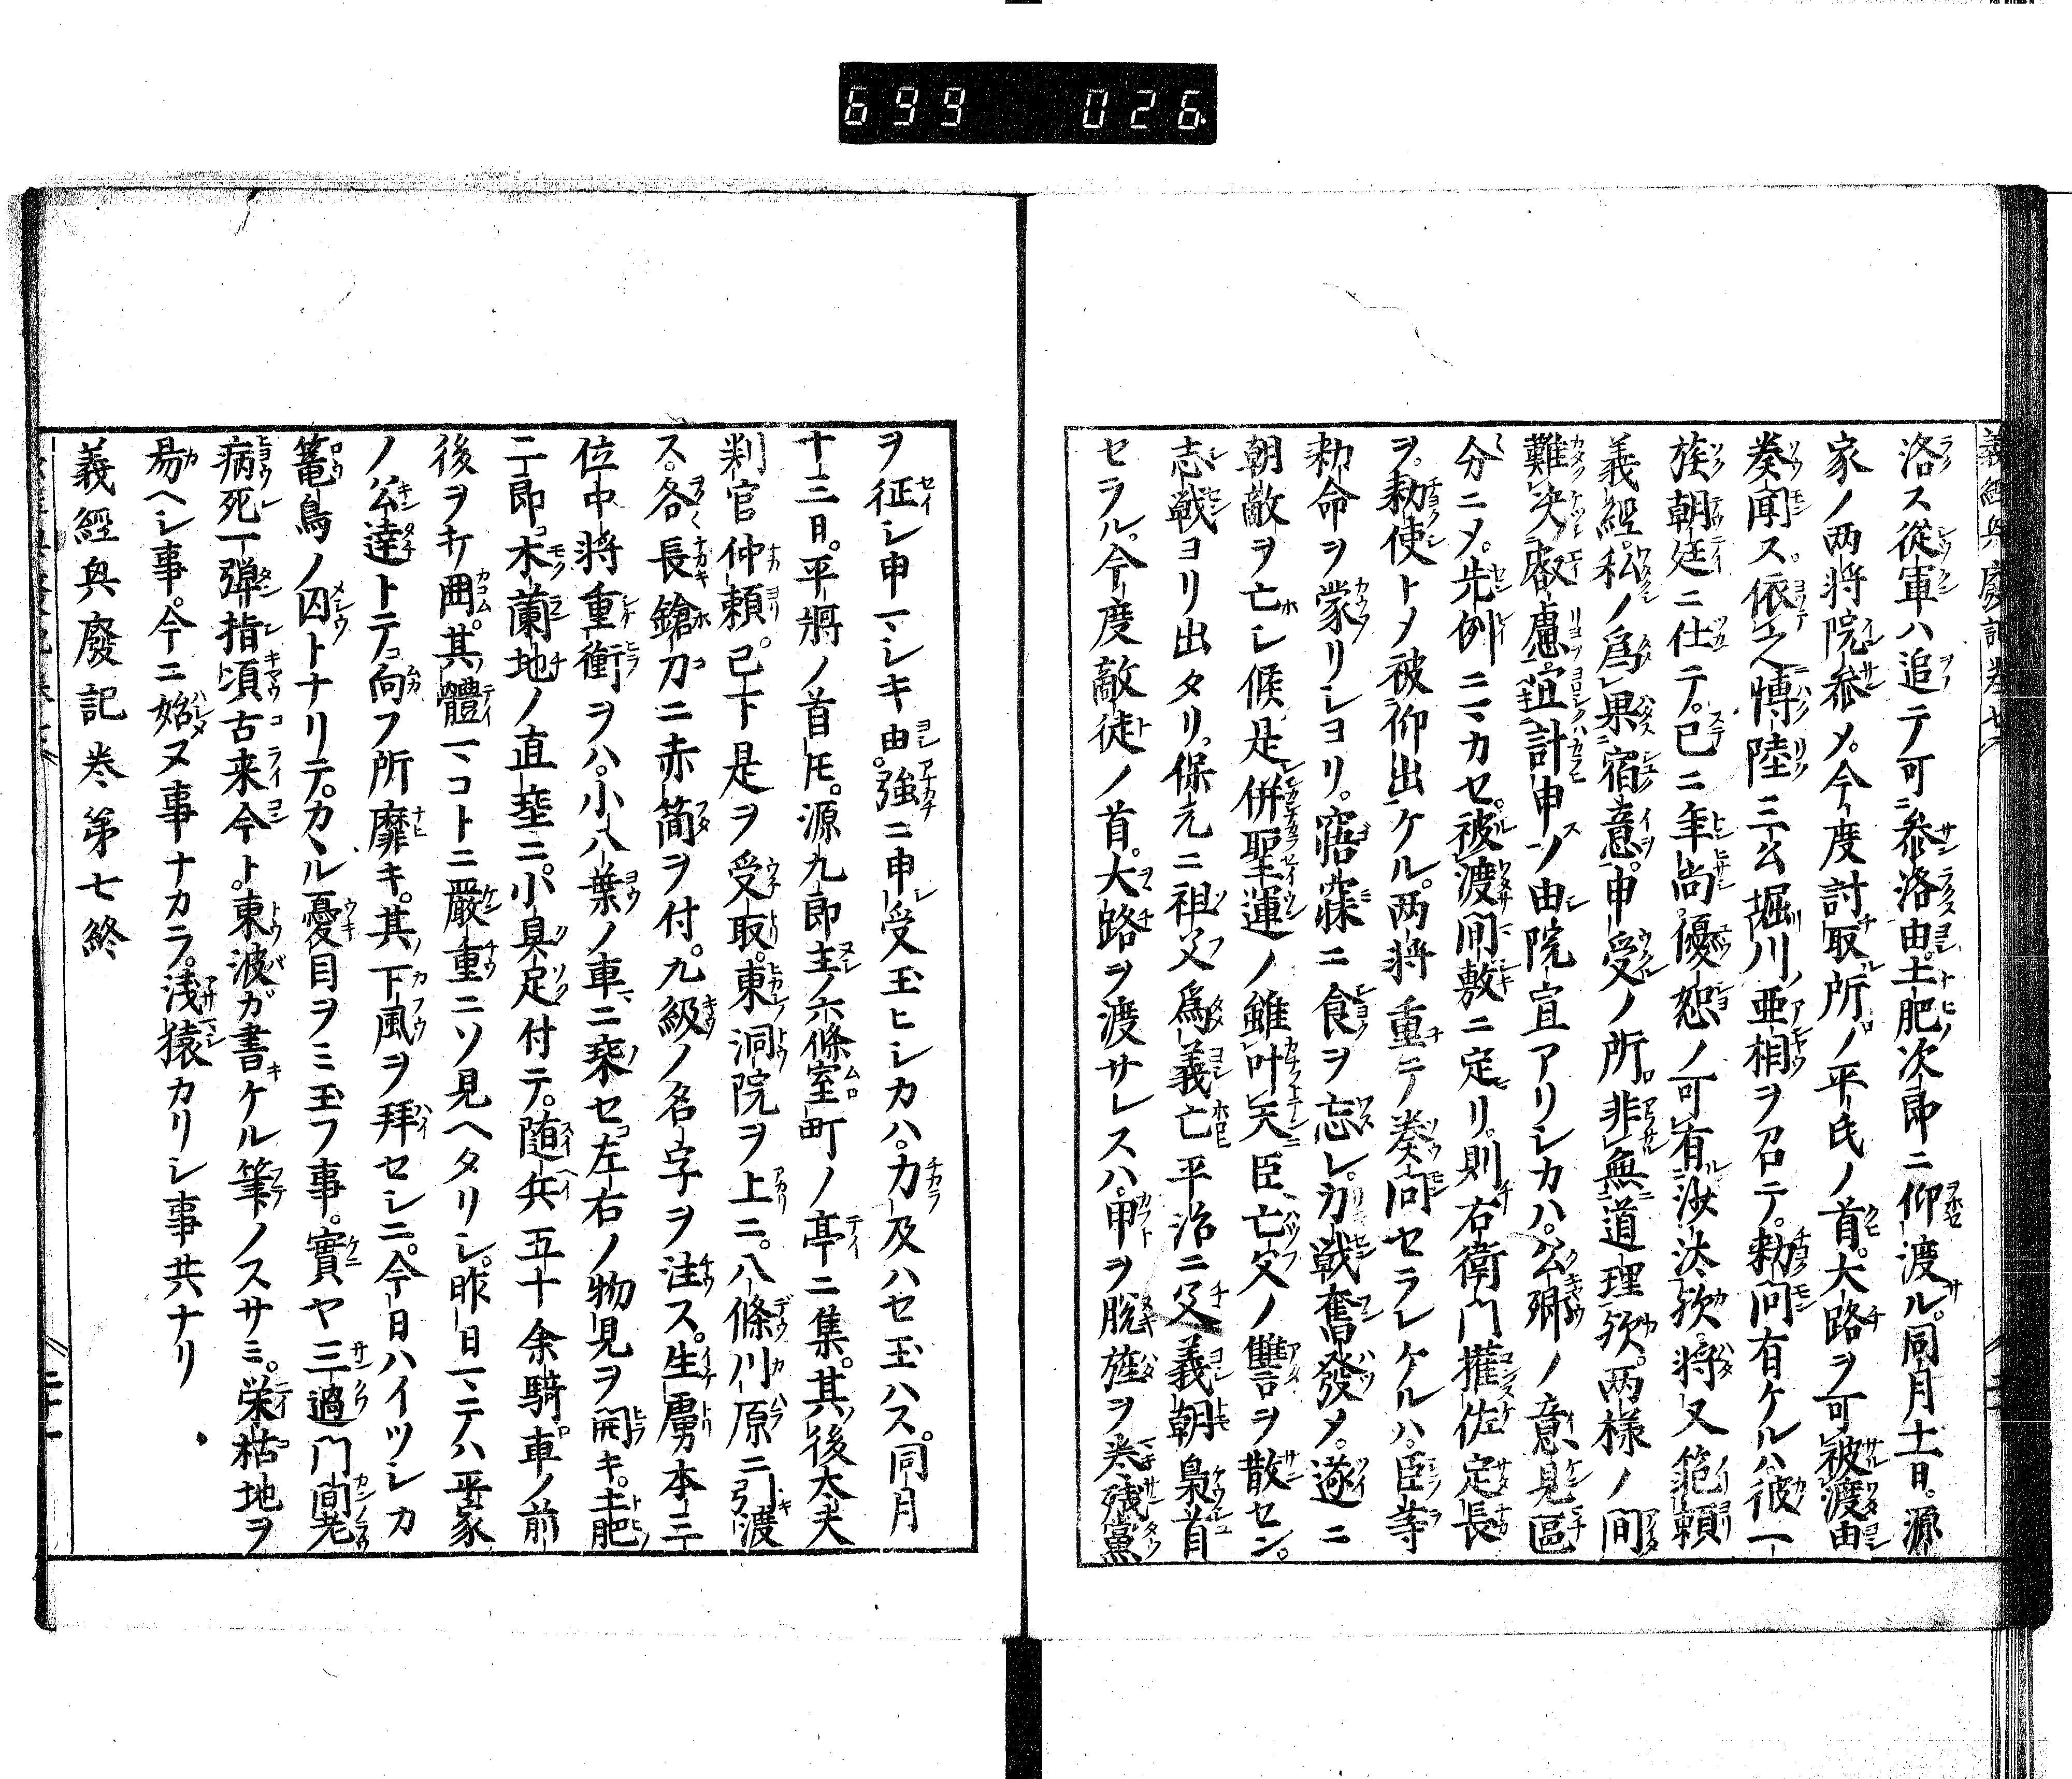 699 026
義經興廢記卷七
洛ス從軍ハ追テ可参洛由。土肥次郎ニ仰渡ル。同月十一日。源
家ノ两将院参メ。今度討取所ノ平氏ノ首。大路ヲ可被渡由
奏聞ス。依之慱陸三公堀川亜相ヲ召テ。勅問有ケルハ。彼一
族朝廷ニ仕テ。已ニ年尚。優恕ノ可有沙汰歟。将又範頼
義經。私ノ為果宿意。申受ノ所。非無道理歟。两様ノ間
難决叡慮。宜計申ソ由院宣アリシカハ。公卿ノ意見區
分ニメ。先例ニマカセ。被渡間敷ニ定リ。則右衛門權佐定長
ヲ。勅使トメ被仰出ケル。两将重テ奏問セラレケルハ。臣等
勅命ヲ蒙リシヨリ。寤寐ニ食ヲ忘レ。力戦奮發メ。遂ニ
朝敵ヲ亡シ候。是併聖運ノ雖叶天。臣亡父ノ讐ヲ散セン。
志戦ヨリ出タリ。保元ニ祖父為義亡平治ニ父義朝梟首
セラル。今度敵徒ノ首。大路ヲ渡サレスハ。甲ヲ脱旌ヲ巻残黨
ヲ征シ申マシキ由。強ニ申受玉ヒシカハ。力及ハセ玉ハス。同月
十三日。平將ノ首𪜈。源九郎主ノ六條室町ノ亭ニ集。其後太夫
判官仲頼。已下是ヲ受取。東洞院ヲ上ニ。八條川原ニ引渡
ス。各長鎗刀ニ赤簡ヲ付。九級ノ名字ヲ注ス。生虜本三
位中将重衡ヲハ。小八葉ノ車ニ乗セ。左右ノ物見ヲ開キ。土肥
二郎。木蘭地ノ直垂ニ。小具足付テ。随兵五十余騎。車ノ前
後ヲ打囲。其體マコトニ嚴重ニソ見ヘタリシ。昨日マテハ平家
ノ公達トテ。向フ所靡キ。其下風ヲ拜セシニ。今日ハイツシカ
篭鳥ノ囚トナリテ。カヽル憂目ヲミ玉フ事。實ヤ三過門間老
病死一彈指頃古来今ト。東波ガ書ケル筆ノスサミ。栄枯地ヲ
易ヘシ事。今ニ始ヌ事ナカラ。浅猿カリシ事共ナリ
義經興廢記卷第七終
二十一